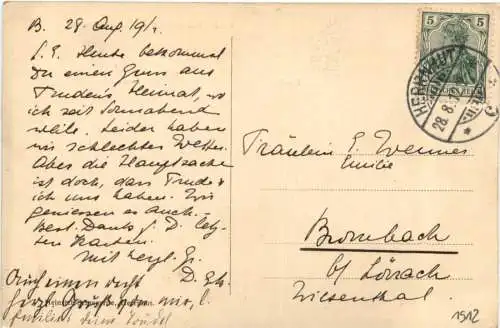 B. 28 Aug. 19/2.
L. E. Heute bekommst
Du einen Gruss aus
Trudens Heimat, wo
ich seit Sonnabend
weile. Leider haben
wir schlechtes Wetter.
Aber die Hauptsache
ist doch, dass Trude &
ich uns haben. Wir
geniessen es auch.
Best. Dank f. D. letz-
ten Karten.
Mit herzl. Gr.
D.
Auch einen recht
herz
Emilie, dein Trudel
5
HERRNHUT
28.8.
Fräulein E.
Emilie
Brombach
b/ Lörrach
Wiesenthal.
1512